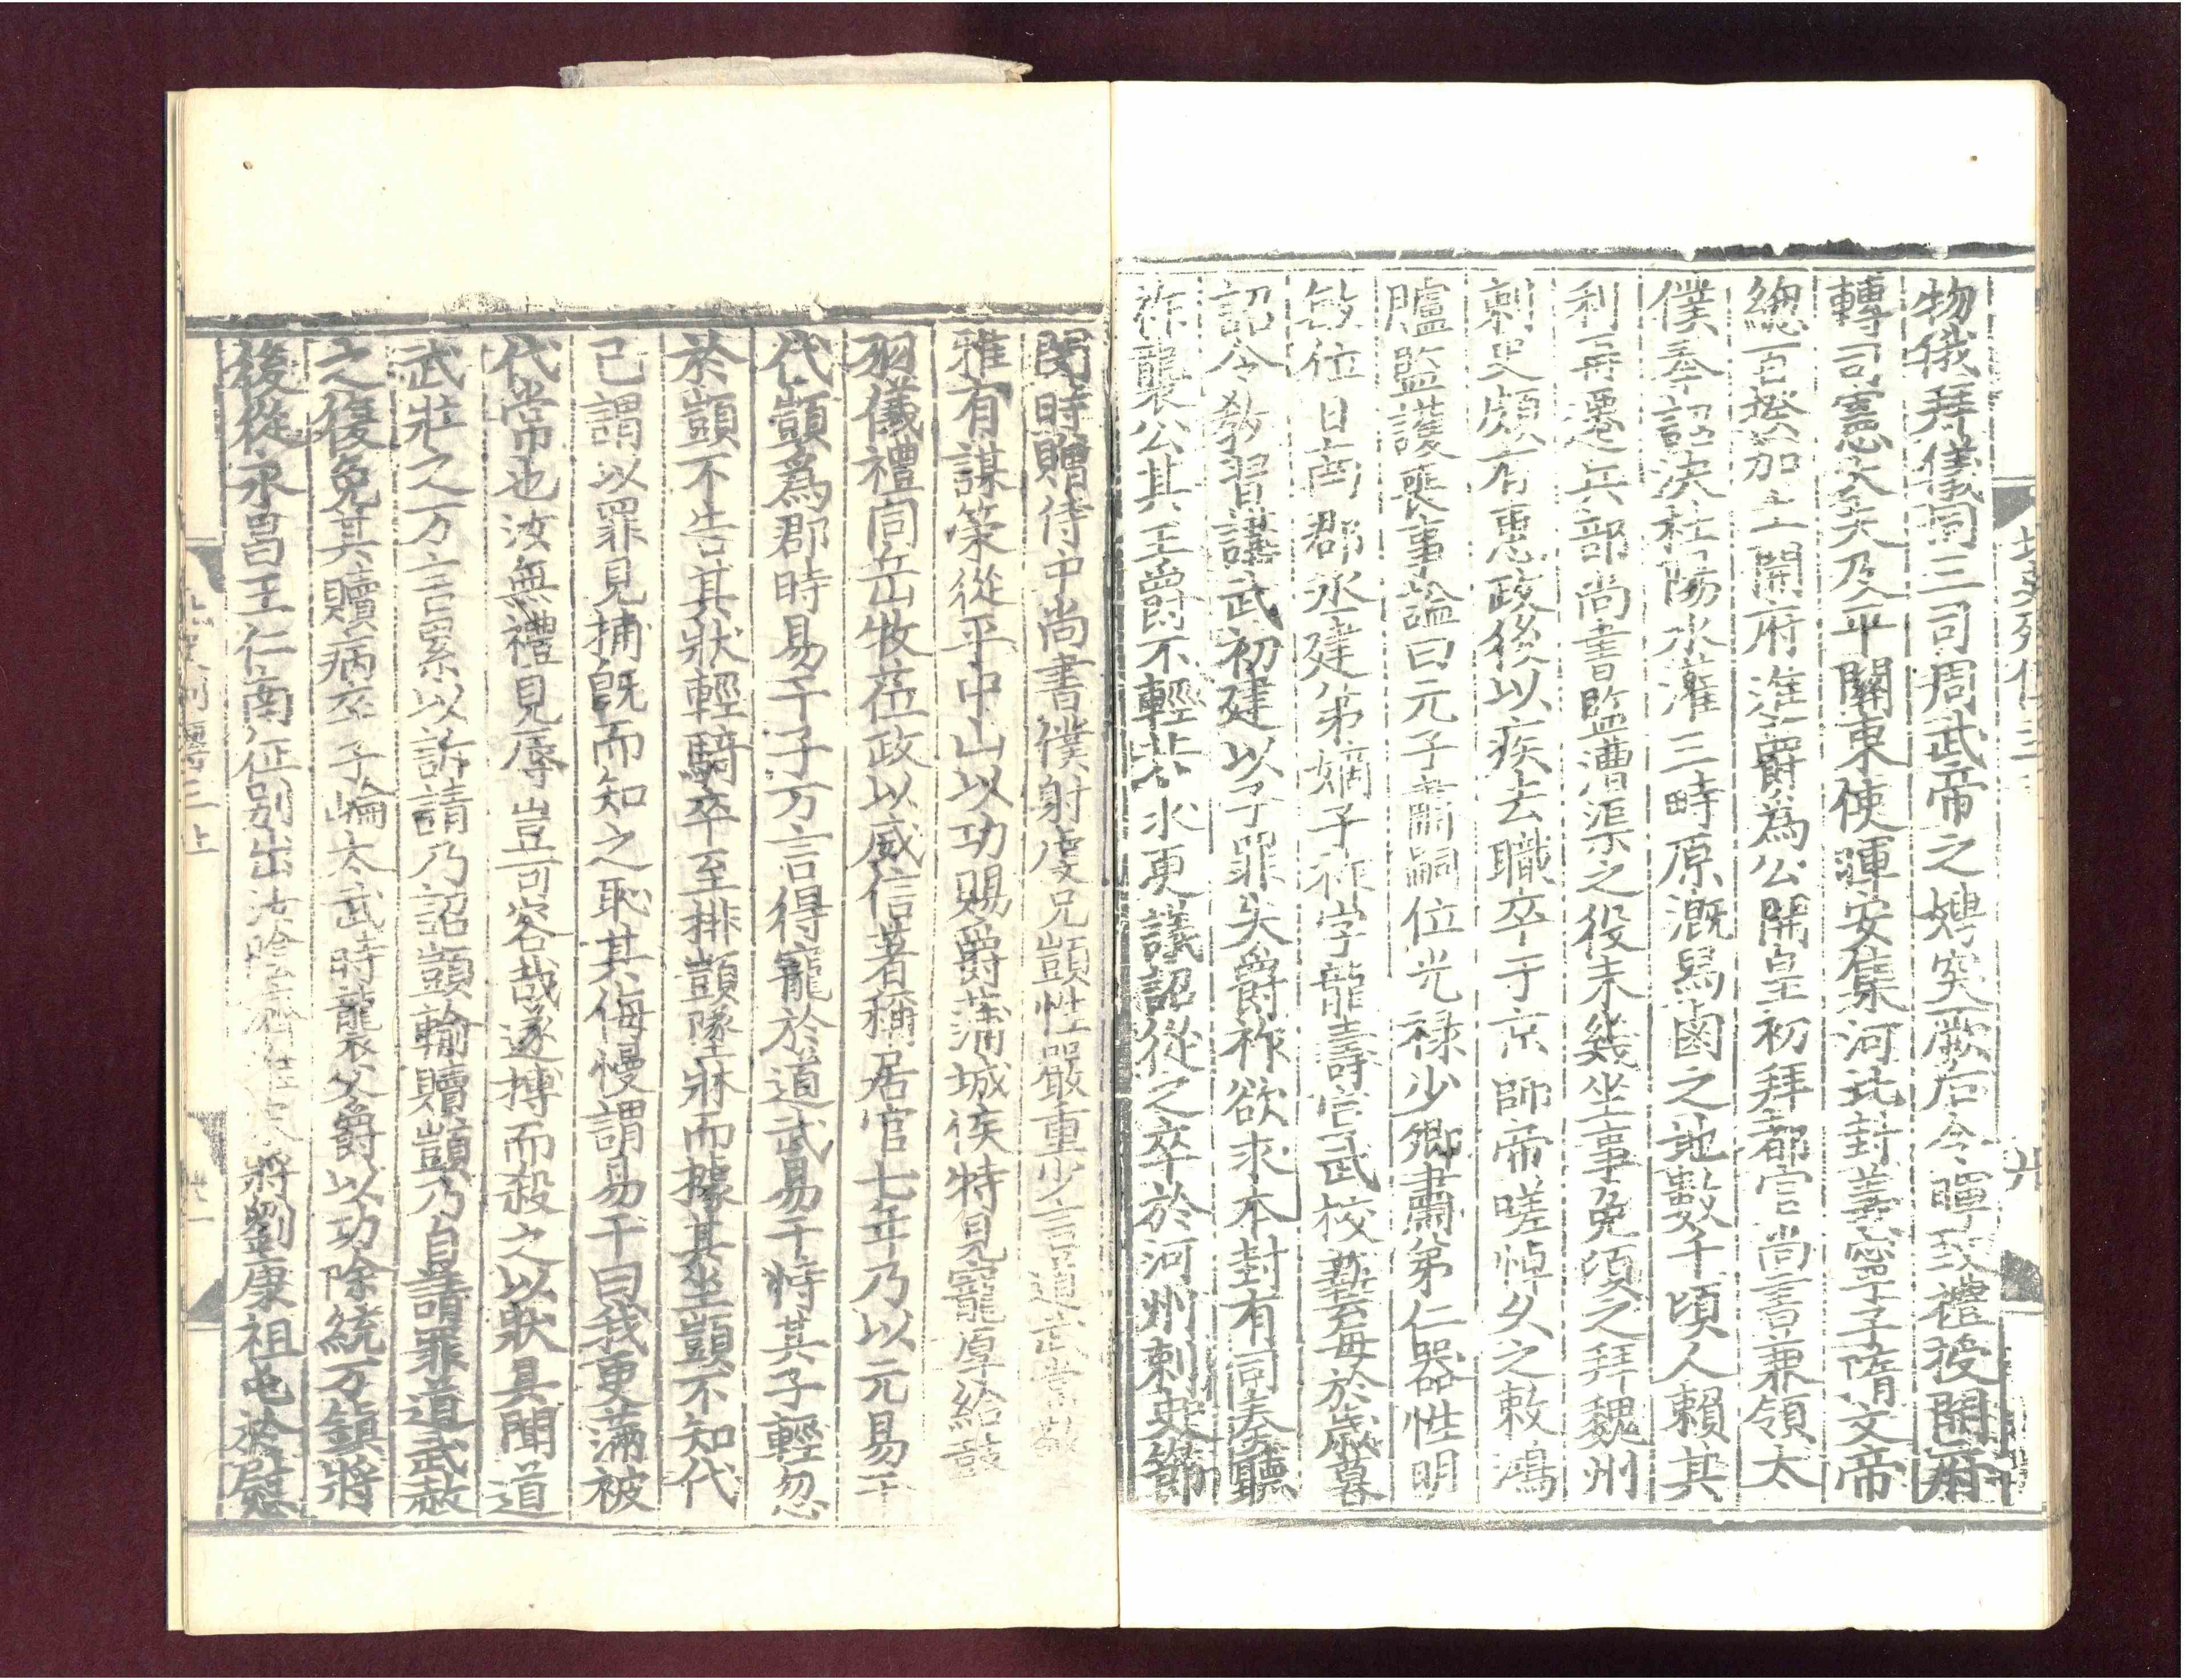 北史列傳三
九
物俄拜儀同三司周武帝之娉突厥后令暉致禮授開府
轉司憲大夫及平關東使暉安集河北封義寧子隋文帝
總百揆加上開府進爵為公開皇初拜都官尚書兼領太
僕奏請決杜陽水灌三畤原溉舄鹵之地數千頃人賴其
利再遷兵部尚書監漕渠之役未幾坐事免頃之拜魏州
刺史頗有惠政後以疾去職卒于京師帝嗟悼久之敕鴻
臚監護喪事諡曰元子肅嗣位光祿少卿肅弟仁器性明
敏位日南郡丞建弟嫡子祚字龍壽宣武校藝每於歲暮
詔令教習講武初建以子罪失爵祚欲求本封有司奏聽
祚襲公其王爵不輕共求更議詔從之卒於河州刺史節
閔時贈侍中尚書僕射虔兄顗性嚴重少言道武常敬
雅有謀策從平中山以功賜爵蒲城侯特見寵厚給鼓
羽儀禮同岳牧莅政以威信著稱居官七年乃以元易干
代顗為郡時易干子万言得寵於道武易干恃其子輕忽
於顗不告其狀輕騎卒至排顗墜牀而據其坐顗不知代
己謂以罪見捕既而知之恥其侮慢謂易干曰我更滿被
代常也汝無禮見辱豈可容哉遂搏而殺之以狀具聞道
武壯之万言累以訴請乃詔顗輸贖顗乃自請罪道武赦
之復免其贖病卒子崘太武時襲父爵以功除統万鎮將
後從永昌王仁南征別出汝陰濟淮宋將劉康祖屯於慰
北史列傳三上